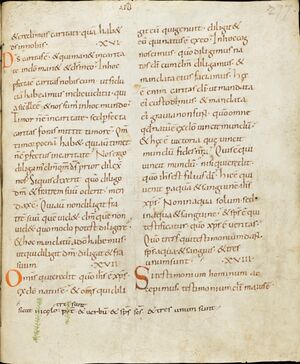 & credimus caritati quā habet
ds in nobis · XVI ·
Ds caritas ē & qui manet in carita
te in dō manet & ds in eo · In hoc p
fecta ē caritas nobiscum ut fiducia
habeamus in die iudicii · quia
sicut ille ē & nos sum in hoc mundo ·
Timor nē in caritate · sed pfecta
caritas foras mittit timorē · Qm̄
timor poenā habet · qui autē timet
nē pfectus in caritate · Nos ergo
diligam qm̄ ds prior dilex
nos · Siquis dixerit qm̄ diligo
dm̄ & fratrem suū oderit · men
dax ē · Qui enī non diligit fra
trē suū quē uidet · dm̄ quē non
uidet quomodo potest diligere ·
& hoc mandatū ab eo habemus
ut qui diligit dm̄ diligat & fra
trem suum · XVII ·
Omnis qui credit qm̄ ihs ē xps
ex dō natus ē · & omnis qui dili
git eū qui genuit · diligit &
eū qui natus ē ex eo · In hoc cog
noscimus qm̄ diligimus na
tos dī · cum dm̄ diligamus · &
mandata eius faciamus · haec ē
enī caritas dī · ut mandata
eius custodiamus · & mandata
ei grauia non sunt · quoniā omne
qd natū ē ex dō uincit mundū
& haec ē uictoria que uincit
mundum fides nostra · Quis ē qui
uincit mundū · nisi qui credit
qm̄ ihs est filius dī · Hic ē qui
uenit p aquā & sanguinē ihs
xps · Non in aqua solum sed
in aqua & sanguine · & sps ē qui
testificatur qm̄ xps ē ueritas ·
Quia tres sunt qui testimoniū dant ·
sps & aqua & sanguis & tres
unum sunt · XVIII ·
Si testimonium hominum ac
cepimus testimoniū dī maius ē
sicut in celo tres sunt pat̄ & verbū & sps scs & tres unum sunt